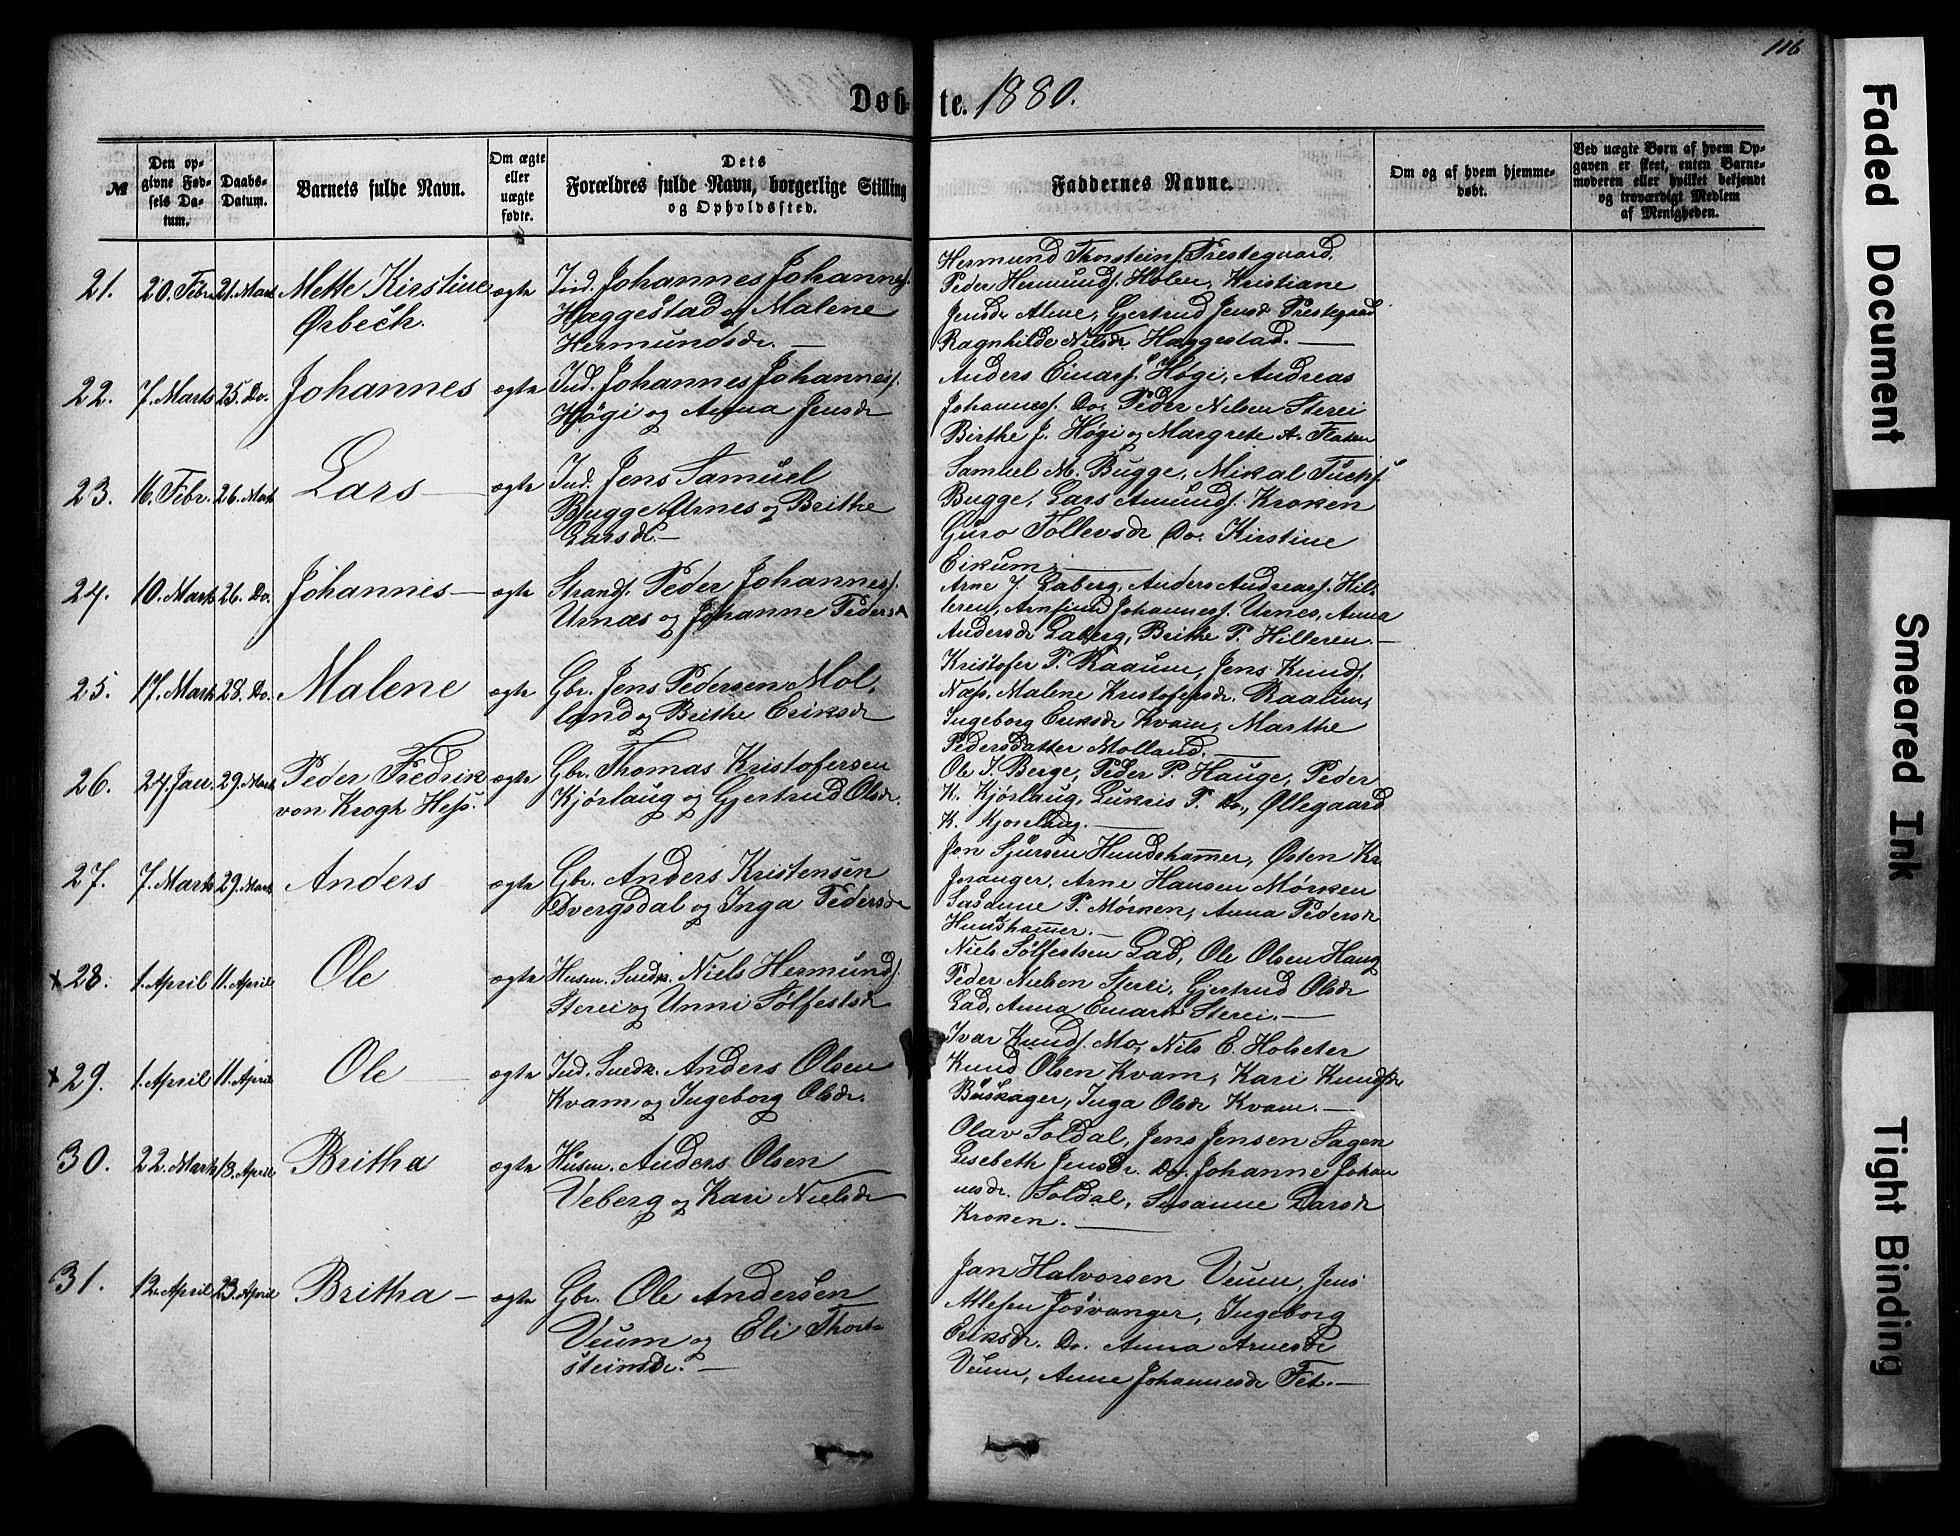 116
Døbte. 1880.
№
Den opgivne Fødsels Datum.
Daabs-Datum.
Barnets fulde Navn.
Om ægte eller uægte fødte.
Dets Forældres fulde Navn, borgerlige Stilling og Opholdssted.
Faddernes Navne.
Om og af hvem hjemmedøbt.
Ved uægte Børn af hvem Opgaven er skeet, enten Barnemoderen eller hvilket bekjendt og troværdigt Medlem af Menigheden.
21. 20. Febr. 21. Marts Mette Kirstine ægte Ind. Johannes Johanness.
Ørbech. Hæggestad og Malene
Hermundsdr. —
Hermund Thorsteins. Prestegaard,
Peder Hermunds. Holen, Kristiane
Jensdr Alme, Gjertrud Jensdr Prestegaard
Ragnhilde Nilsdr. Hæggestad. —
22. 7. Marts 25. Do. Johannes ægte Ind. Johannes Johanness.
Høgi og Anna Jensdr
Anders Einars. Høgi, Andreas
Johanness. Do. Peder Nilsen Sterei
Birthe J. Høgi og Margrete A. Flaten
23. 16. Febr. 26. Marts Lars — ægte Ind. Jens Samuel
Bugge Urnes og Brithe
Larsdr. —
Samuel M. Bugge, Mikal
Bugge, Lars Amunds. Kroken
Guro Tollevsdr Do. Kirstine
Eikum. —
24. 10. Marts 26. Do. Johannes — ægte Strands. Peder Johanness.
Urnæs og Johanne Pedersdr
Arne J. Laberg, Anders Andreass. Hil-
leren, Arnfind Johanness. Urnes, Anna
Andersdr Laberg, Brithe P. Hilleren. —
25. 17. Marts 28. Do. Malene ægte Gbr. Jens Pedersen Mol-
land og Brithe Eriksdr
Kristofer P. Raaum, Jens Knuds.
Næss, Malene Kristofersdr. Raaum,
Ingeborg Eriksdr Kvam, Marthe
Pedersdatter Molland. —
26. 24. Jan. 29. Marts Peder Fredrik ægte Gbr. Thomas Kristofersen
von Krogh Hess. Kjørlaug og Gjertrud Olsdr.
Ole J. Berge, Peder P. Hauge, Peder
K. Kjørlaug, Lukris P. Do., Øllegaard
K. Kjørlaug. —
27. 7. Marts 29. Marts Anders ægte Gbr. Anders Kristensen
Dvergsdal og Inga Pedersdr
Jon Sjursen Hundshammer, Østen Kr.
Joranger, Arne Hansen Mørken
Sasanne P. Mørken, Anna Pedersdr
Hundshammer. —
x 28. 1. April 11. April Ole ægte Husm. Snedk. Niels Hermunds.
Sterei og Unni Sølfestsdr
Niels Sølfestsen Lad, Ole Olsen Haug
Peder Nielsen Sterei, Gjertrud Olsdr
Lad, Anna Einarsdr Sterei. —
x 29. 1. April 11. April Ole ægte Ind. Snedk. Anders Olsen
Kvam og Ingeborg Olsdr.
Ivar Knuds. Mo, Nils E. Holseter
Knud Olsen Kvam, Kari Knudsdr
Buskager, Inga Olsdr Kvam. —
30. 22. Marts 18. April Britha ægte Husm. Anders Olsen
Veberg og Kari Nielsdr
Olav Soldal, Jens Jensen Sagen
Lisebeth Jensdr. Do. Johanne Johan
nesdr. Soldal, Susanne Larsdr
Kroken. —
31. 12. April 23. April Britha — ægte Gbr. Ole Andersen
Veum og Eli Thor-
steinsdr. —
Jan Halvorsen Veum, Jens
Atlesen Josvanger, Ingeborg
Eriksdr. Do. Anna Arnesdr
Veum, Anne Johannesdr Fet. —
Faded Document
Smeared Ink
Tight Binding